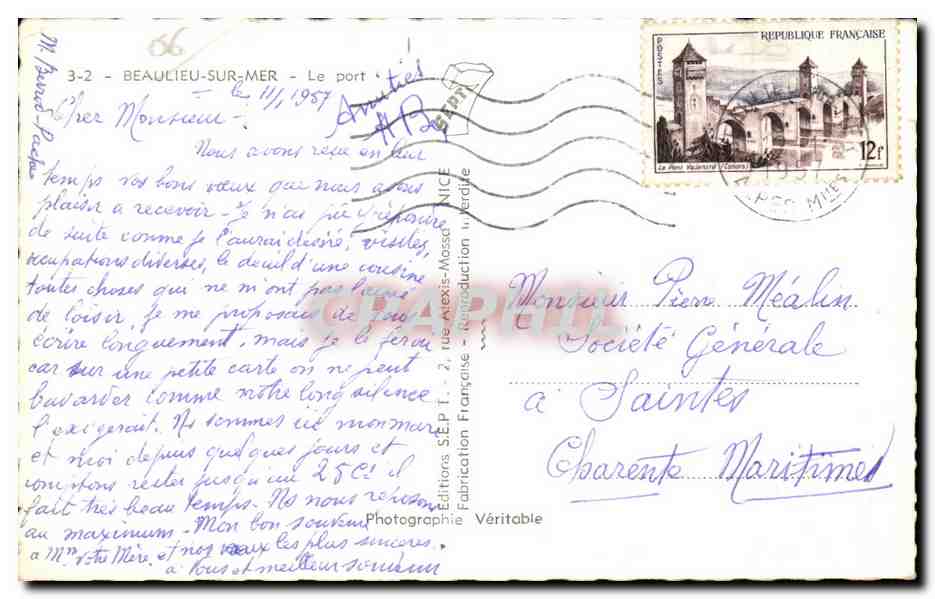 66
3-2 - BEAULIEU-SUR-MER - Le port
le 11/1957
Amitiés
Cher Monsieur -
Nous avons reçu en leur
temps vos bons vœux que nous avons
plaisir a recevoir - Je n'ai pu répondre
de suite comme je l'aurai désiré, visites,
occupations diverses, le deuil d'une cousine
toutes choses qui ne m'ont pas laissé
de loisir, je me proposais de vous
écrire longuement, mais je le ferai
car sur une petite carte on ne peut
bavarder comme notre long silence
l'exigerait. Ns sommes ici mon mari
et moi depuis quelques jours et
comptons rester jusqu'au 25 Ct il
fait très beau temps. Ns nous reposons
au maximum - Mon bon souvenir
a Mm votre Mère. et nos vœux les plus sincères.
à vous et meilleur souvenir
Editions S.E.P.T. - 2, rue Alexis-Mossa - NICE
Fabrication Française - Reproduction Interdite
SEPT
Photographie Véritable
REPUBLIQUE FRANÇAISE
POSTES
Le Pont Valentré (Cahors)
12f
1957
ALPES MMES
Monsieur Pierre Méalin
Société Générale
à Saintes
Charente Maritime
CPAPHIL